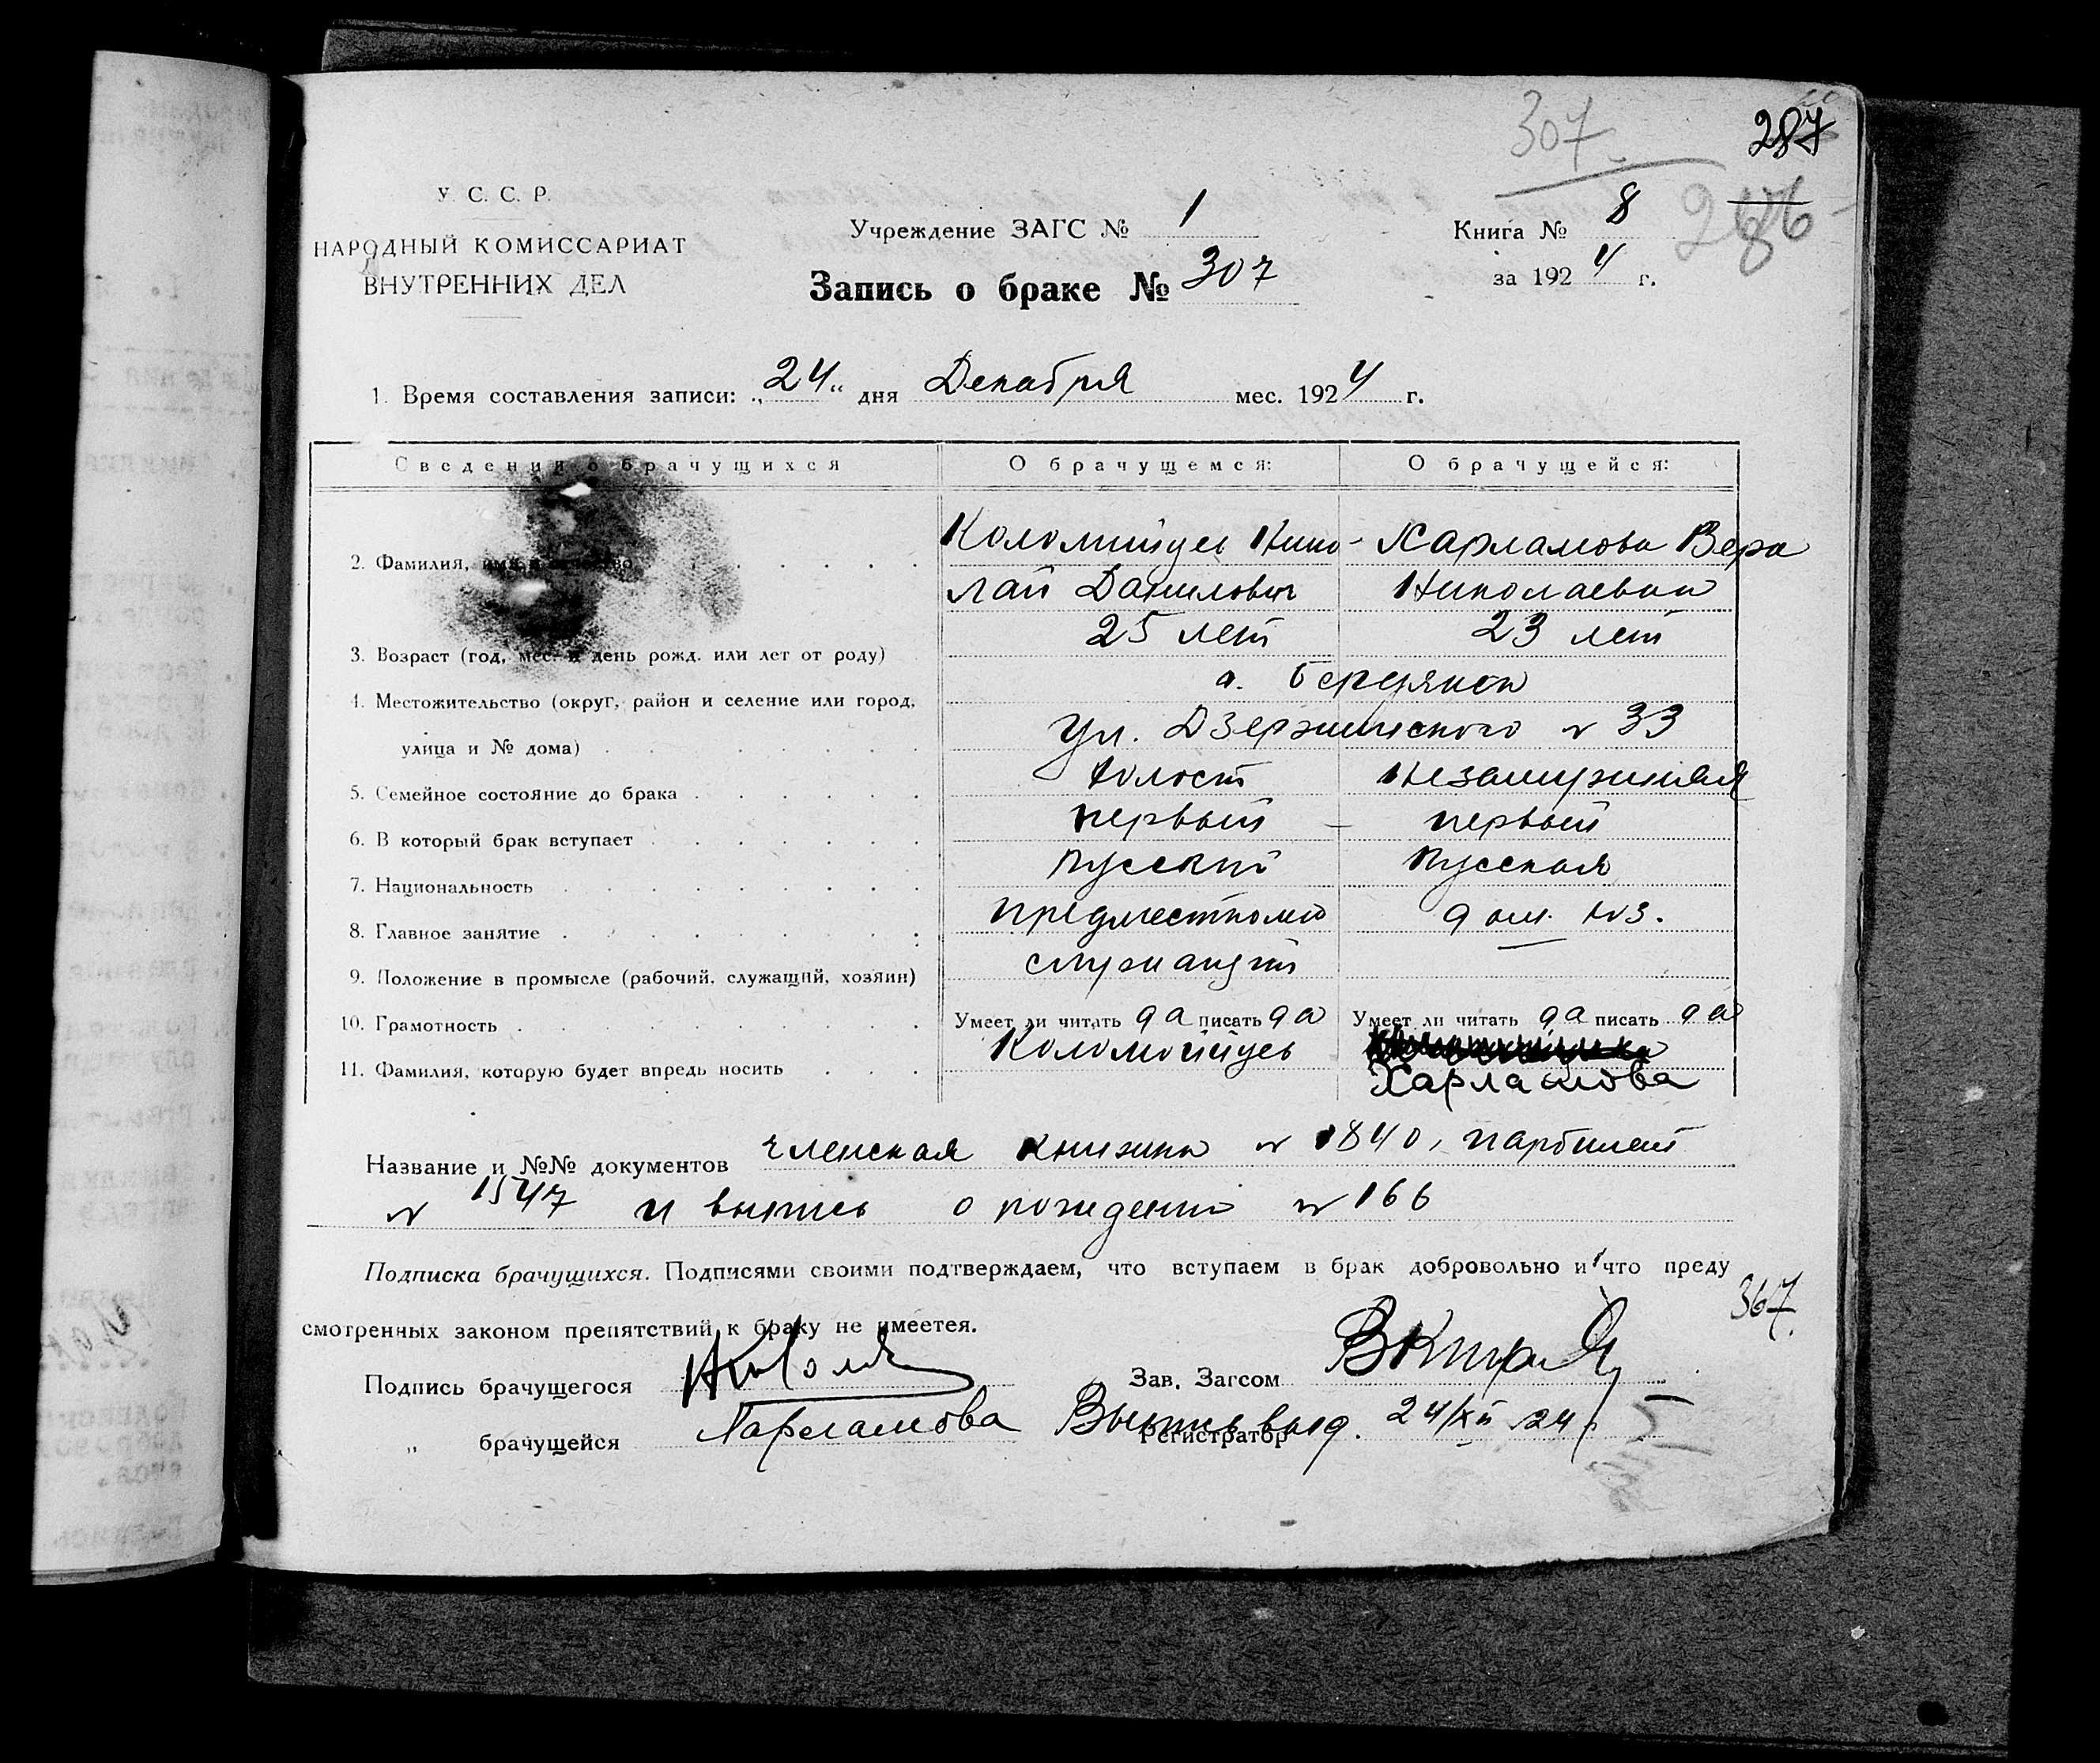 307
287
286
У. С. С. Р.
НАРОДНЫЙ КОМИССАРИАТ
ВНУТРЕННИХ ДЕЛ
Учреждение ЗАГС № 1
Запись о браке № 307
Книга № 8
за 1924 г.
1. Время составления записи: „24" дня Декабря мес. 1924 г.
Сведения о брачущихся О брачущемся: О брачущейся:
2. Фамилия, имя и отчество Коломийцев Нико- Харламова Вера
лай Данилович Николаевна
3. Возраст (год, мес. и день рожд. или лет от роду) 25 лет 23 лет
4. Местожительство (округ, район и селение или город, г. Бердянск
улица и № дома) ул. Дзержинского № 33
5. Семейное состояние до брака холост незамужняя
6. В который брак вступает первый – первый
7. Национальность русский русская
8. Главное занятие предместкома дом. хоз.
9. Положение в промысле (рабочий, служащий, хозяин) служащий —
10. Грамотность Умеет ли читать да писать да Умеет ли читать да писать да
11. Фамилия, которую будет впредь носить Коломойцев
Харламова
Название и №№ документов членская книжка № 1840, партбилет
№ 1547 и выпись о рождении № 166
Подписка брачущихся. Подписями своими подтверждаем, что вступаем в брак добровольно и что преду
смотренных законом препятствий к браку не имеется.
367.
Подпись брачущегося
Зав. Загсом
„ брачущейся Харламова
Регистратор
Выпись выд. 24/XII 24 г